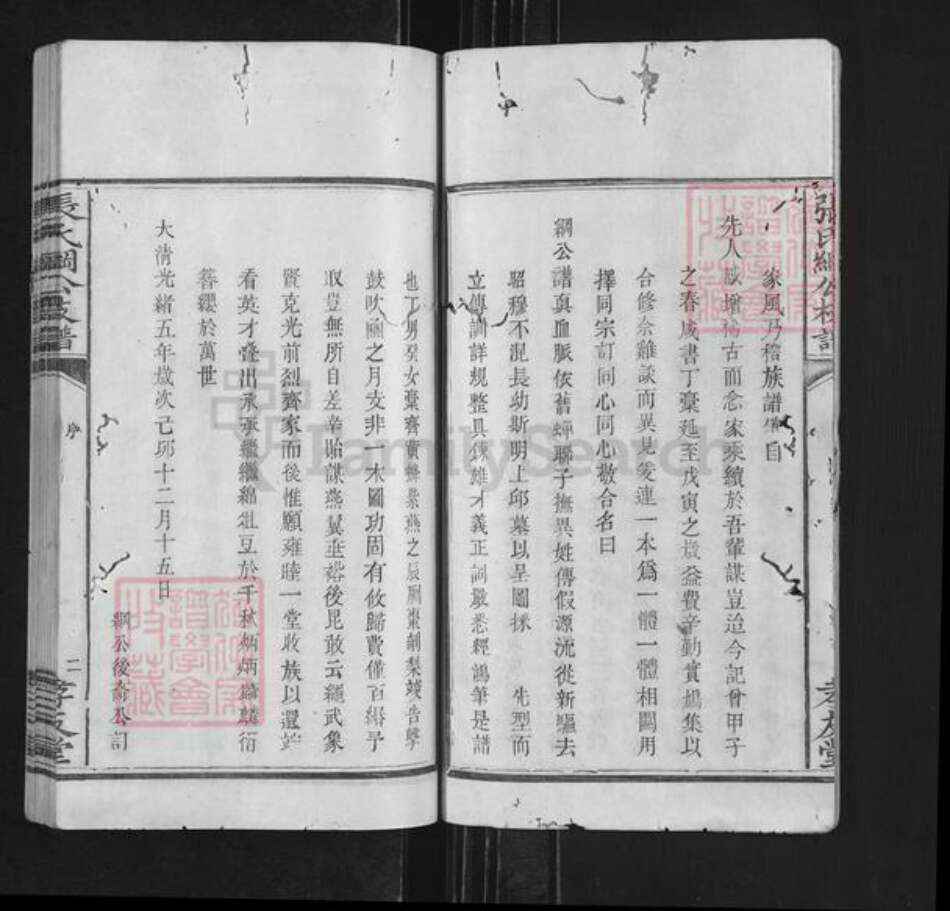 張氏綱公枝譜
孝友堂
家風乃稽族譜自
先人感增物古而念家乘續於吾輩謀豈迨今記曾甲子
之春咸書丁稾延至戊寅之歲益費辛勤實搗集以
合修僉雖談而異見爰連一本爲一體一體相關用
擇同宗訂同心同心敬合名曰
綱公譜眞血脈依舊蟬聯子撫異姓傳假源流從新驅去
昭穆不混長幼斯明上邱墓以呈圖採 先型而
立傳訓詳規整具鍊雄才義正詞嚴悉經鴻筆是譜
也丁男癸女稾齊賣燕之辰棗剞梨竣告擊
鼓吹豳之月支非一木圖功固有攸歸費僅百緡予
取豈無所自差幸貽謀燕翼垂裕後昆敢云繩武象
賢克光前烈齊家而後惟願雍睦一堂收族以還竚
看英才疊出承承繼繼綿俎豆於千秋炳炳麟麟衍
簪纓於萬世
大淸光緖五年歲次己卯十二月十五日
綱公後裔公訂
張氏綱公枝譜
序
二
孝友堂
FamilySearch